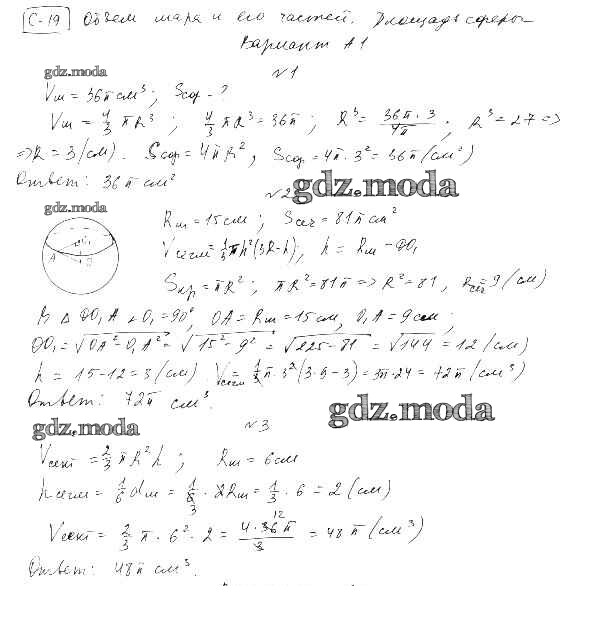 С-19 Объем шара и его частей. Площадь сферы
Вариант А1
№1
gdz.moda
Vш = 36π см³; Sсф - ?
Vш = 4/3 πR³; 4/3 πR³ = 36π; R³ = 36π · 3 / 4π. R³ = 27 =>
=> R = 3 (см). Sсф = 4πR², Sсф = 4π · 3² = 36π (см²)
Ответ: 36π см²
№2 gdz.moda
gdz.moda
Rш = 15 см; Sсеч = 81π см²
Vсегм = 1/3 πh²(3R-h); h = Rш - OO₁
Sкр = πR²; πR² = 81π => R² = 81, Rсеч = 9 (см)
Из Δ OO₁A ∠O₁ = 90°, OA = Rш = 15 см, O₁A = 9 см;
OO₁ = √OA² - O₁A² = √15² - 9² = √225 - 81 = √144 = 12 (см)
h = 15 - 12 = 3 (см) Vсегм = 1/3 π · 3² (3 · 9 - 3) = 3π · 24 = 72π (см³)
Ответ: 72π см³.
gdz.moda
gdz.moda №3
Vсект = 2/3 πR²h; Rш = 6 см
hсегм = 1/6 dш = 1/6 · 2Rш = 1/3 · 6 = 2 (см)
Vсект = 2/3 π · 6² · 2 = 4 · 36 12 π / 3 = 48π (см³)
Ответ: 48π см³.